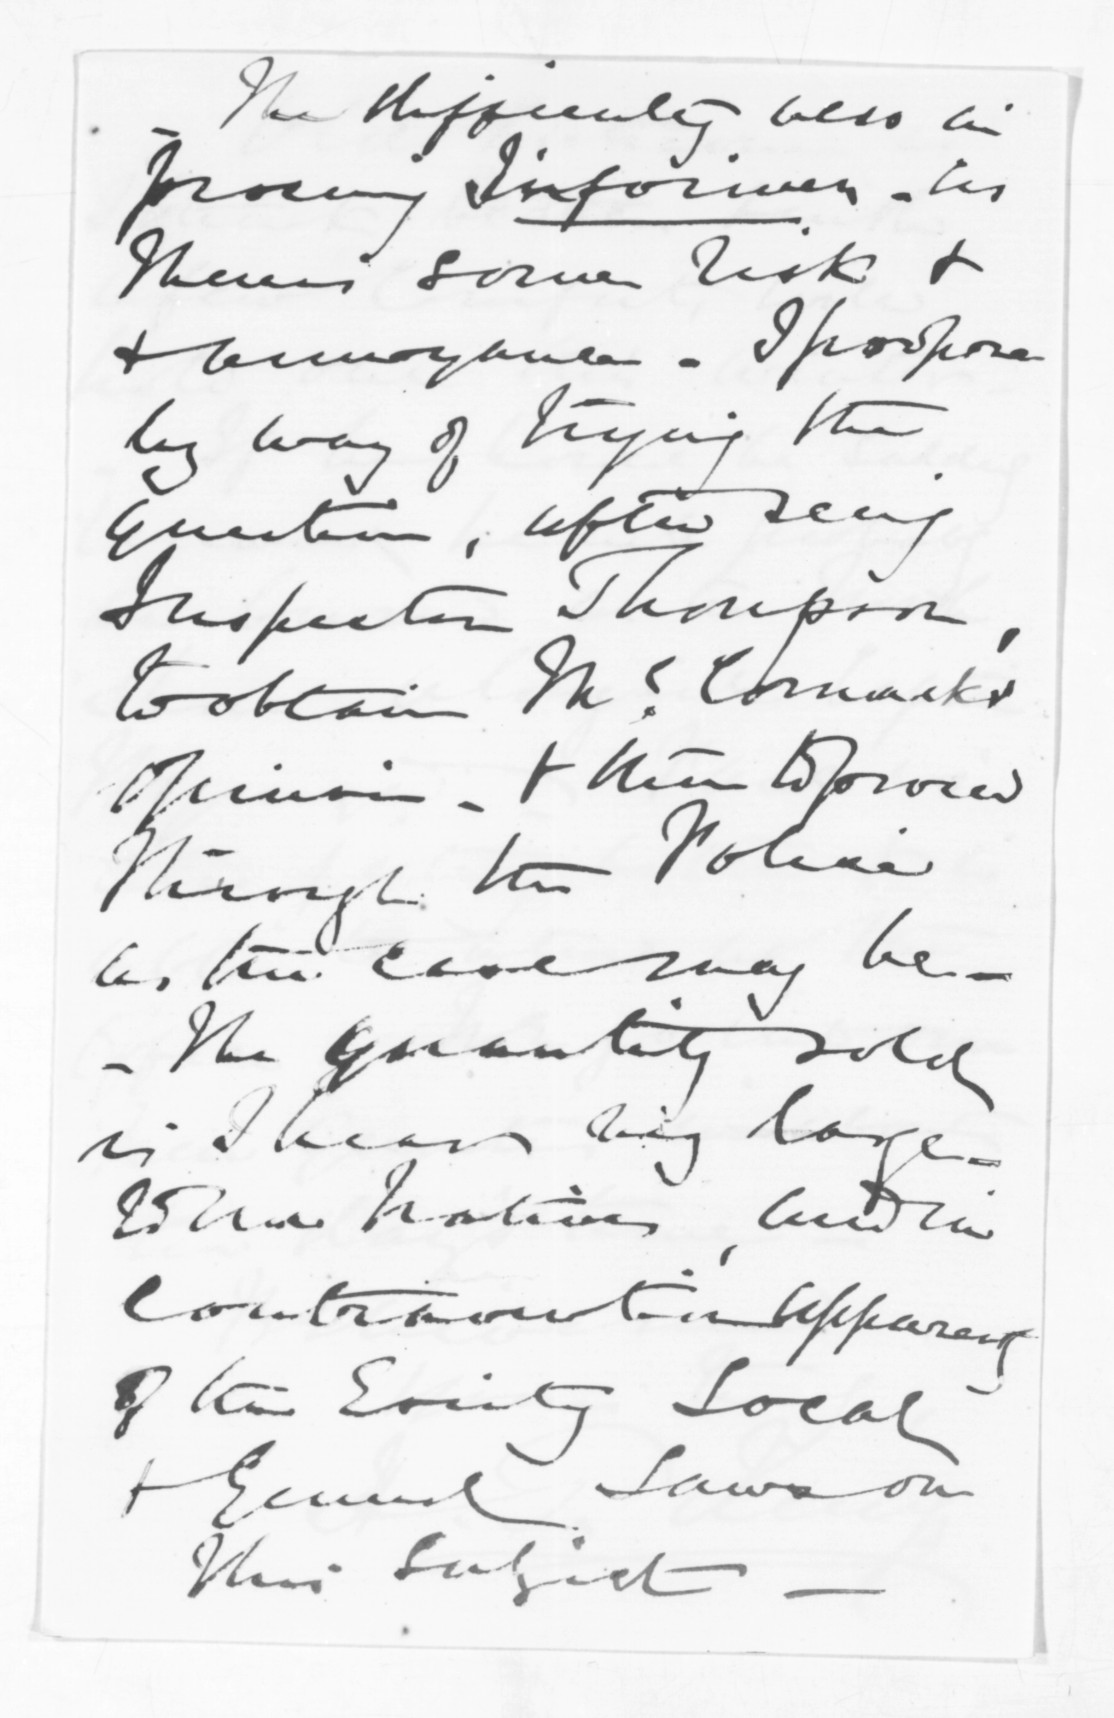 The difficulty also is
- proving Informer - as
there is some risk &
& annoyance - I propose
by way of trying the
question, after seeing
Inspector Thompson,
to obtain McCormacks
opinion - & then to proceed
through the Police
as the case may be -
- The quantity sold
is I hear very large -
to the Natives, and in
contravention apparently
of the Existing Local
& General Laws on
this subject -